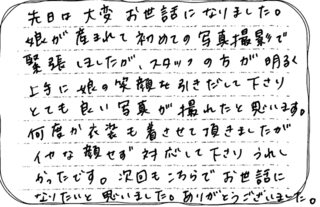 先日は大変お世話になりました。
娘が産まれて初めての写真撮影で
緊張しましたが、スタッフの方が明るく
上手に娘の笑顔を引きだして下さり
とても良い写真が撮れたと思います。
何度か衣装も着させて頂きましたが
イヤな顔せず対応して下さりうれし
かったです。次回もこちらでお世話に
なりたいと思いました。ありがとうございました。